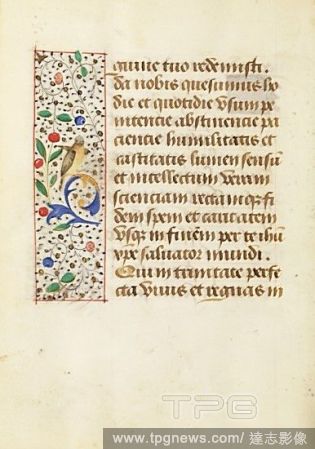 guine tuo redemisti.
Da nobis quesumus ho
die et quotidie usum pe
nitencie abstinencie pa
ciencie humilitatis et
castitatis lumen sensum
et intellectum veram
scienciam rectamque fi
dem spem et caritatem
usque in finem per te ihu
xpe salvator mundi.
Qui in trinitate perfe
cta vivis et regnas in
TPG
www.tpgnews.com/ 達志影像